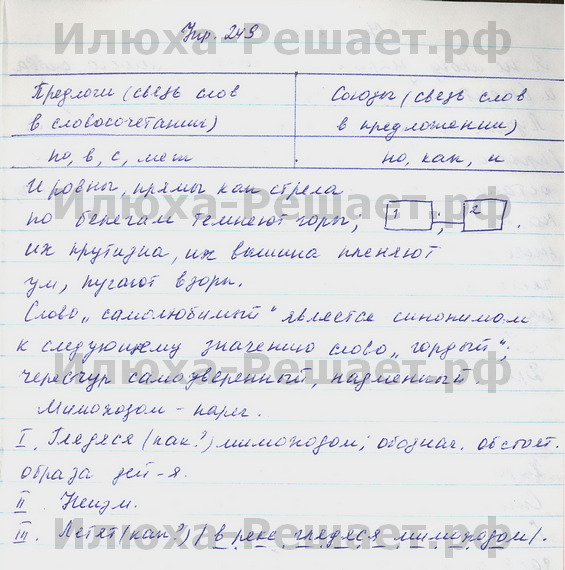 Упр. 249
Илюха-Решает.рф
Предлоги (связь слов
в словосочетании)
Союзы (связь слов
в предложении)
по, в, с, меж
но, как, и
И ровны, прямы как стрела
Илюха-Решает.рф
по берегам темнеют горы; 1 ; 2 .
их крутизна, их вышина пленяют
ум, пугают взоры.
Слово „самолюбивый“ является синонимом
к следующему значению слово „гордый“;
Илюха-Решает.рф
чересчур самоуверенный, надменный.
Мимоходом - нареч.
I. Глядяся (как?) мимоходом; обознач. обстоят.
образа дей-я.
II. Неизм.
III. Летят (как?) / в реке глядяся мимоходом /.
Илюха-Решает.рф